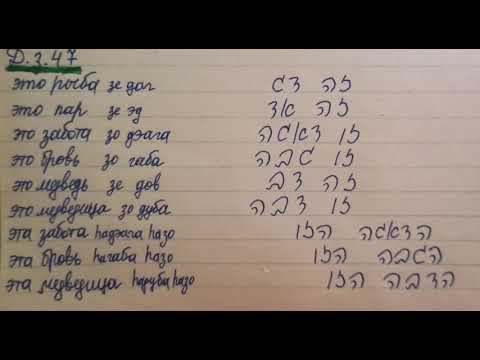 Д.З.47
это рыба зе даг זה דג
это пар зе эд זה אד
это забота зо дэага זו דאגה
это бровь зо габа זו גבה
это медведь зе дов זה דב
это медведица зо дуба זו דבה
эта забота hадэага hазо הדאגה הזו
эта бровь hагаба hазо הגבה הזו
эта медведица hадуба hазо הדבה הזו